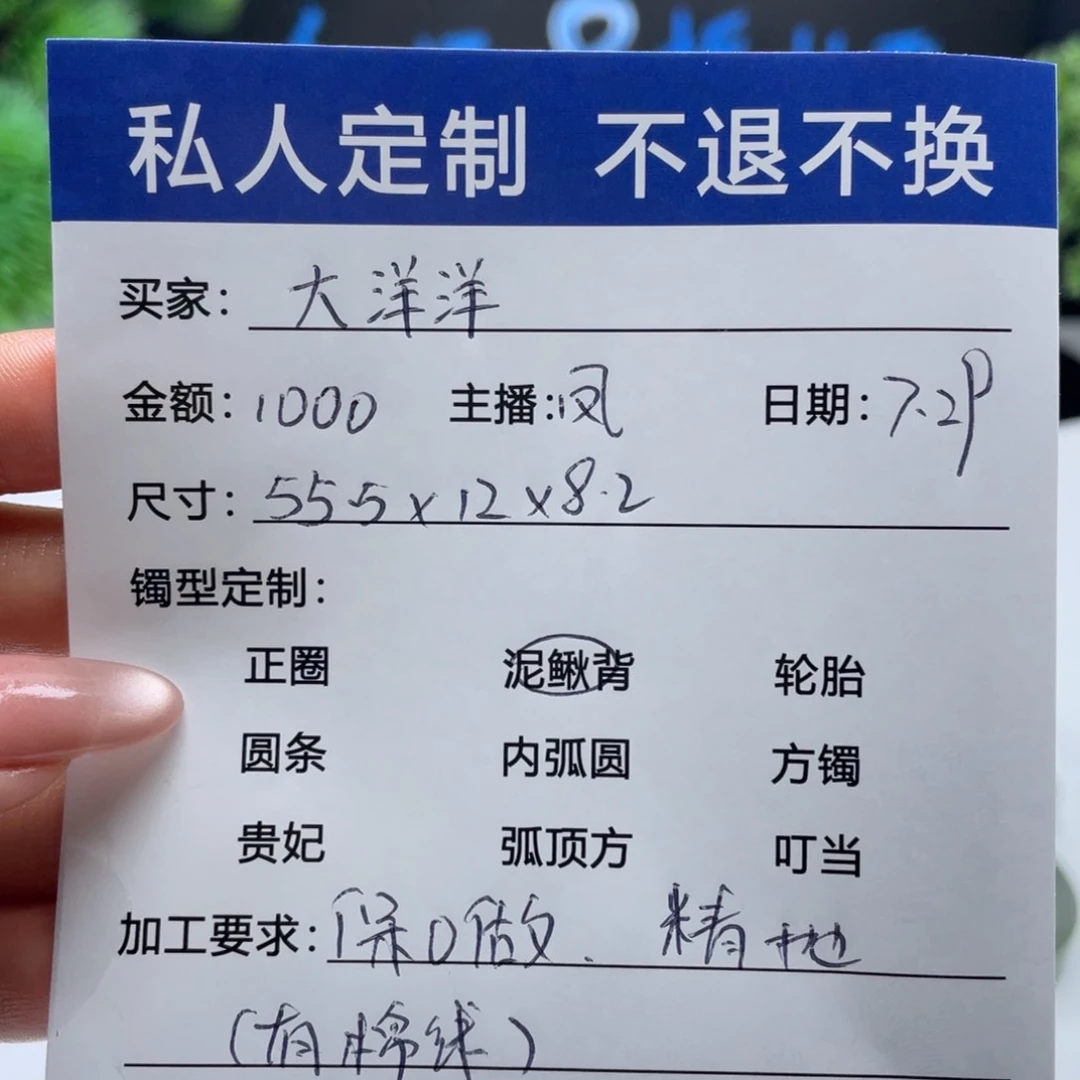 私人定制 不退不换
买家: 大洋洋
金额: 1000 主播: 凤 日期: 7.29
尺寸: 55.5x12x8.2
镯型定制:
正圈 泥鳅背 轮胎
圆条 内弧圆 方镯
贵妃 弧顶方 叮当
加工要求: 保口做. 精抛
(有棉线)